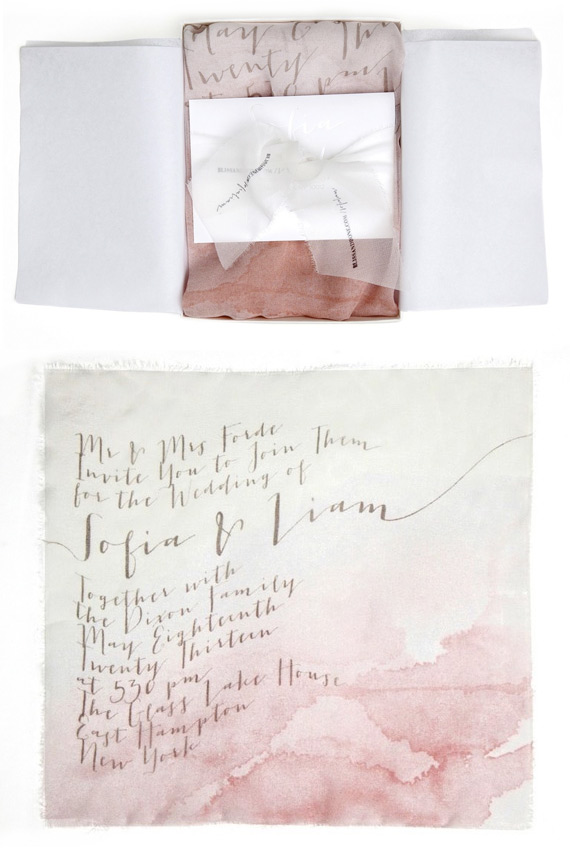 May & Th
Twenty
at 530 pm
Mr & Mrs Forde
Invite You to Join Them
for the Wedding of
Sofia & Liam
Together with
the Dixon Family
May Eighteenth
Twenty Thirteen
at 530 pm
The Glass Lake House
East Hampton
New York